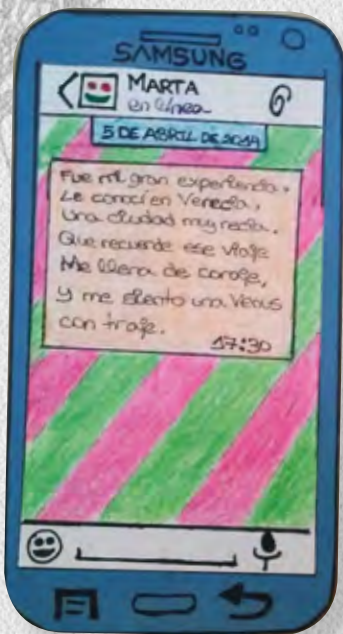 SAMSUNG
MARTA
en línea
5 DE ABRIL DE 2014
Fue mi gran experiencia,
Le conocí en Venecia,
Una ciudad muy recia,
Que recuerde ese viaje
Me llena de coraje,
y me siento una Venus
con traje.
17:30